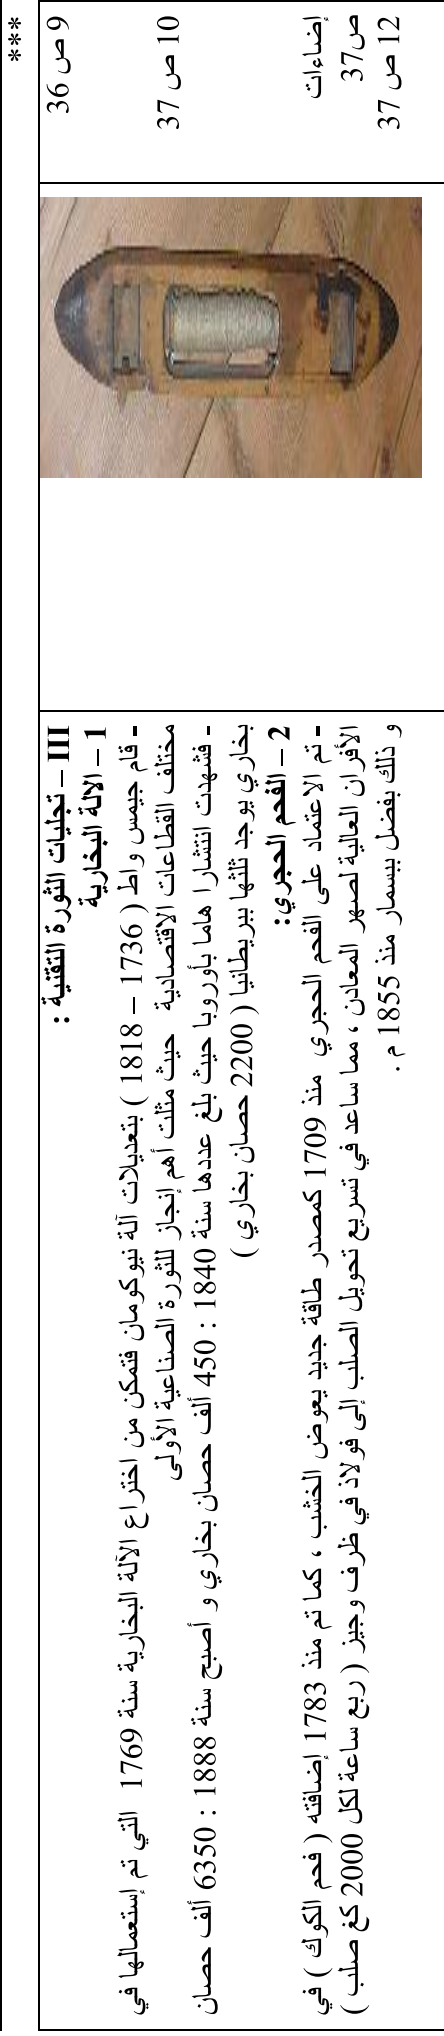 ***
9 ص 36
10 ص 37
إضاءات
ص37
12 ص 37
III – تجليات الثورة التقنية :
1 – الآلة البخارية
- قام جيمس واط ( 1736 – 1818 ) بتعديلات آلة نيوكومان فتمكن من اختراع الآلة البخارية سنة 1769 التي تم إستعمالها في
مختلف القطاعات الاقتصادية حيث مثلت أهم إنجاز للثورة الصناعية الأولى
- فشهدت انتشارا هاما بأوروبا حيث بلغ عددها سنة 1840 : 450 ألف حصان بخاري و أصبح سنة 1888 : 6350 ألف حصان
بخاري يوجد ثلثها ببريطانيا ( 2200 حصان بخاري )
2 – الفحم الحجري :
- تم الاعتماد على الفحم الحجري منذ 1709 كمصدر طاقة جديد يعوض الخشب ، كما تم منذ 1783 إضافته ( فحم الكوك ) في
الأفران العالية لصهر المعادن ، مما ساعد في تسريع تحويل الصلب إلى فولاذ في ظرف وجيز ( ربع ساعة لكل 2000 كغ صلب )
و ذلك بفضل بيسمار منذ 1855 م .